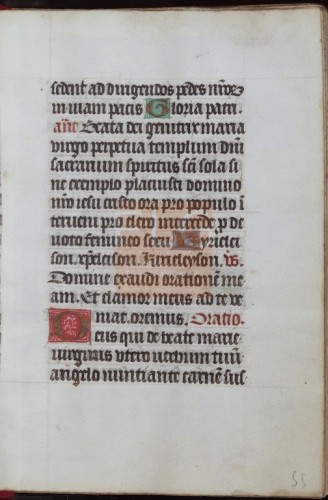 sedent ad dirigendos pedes nr̄os
in uiam pacis Gloria patri.
añt Beata dei genitrix maria
uirgo perpetua templum dn̄i
sacrarium spiritus sc̄i sola si
ne exemplo placuisti domino
nr̄o iesu cristo ora pro populo ī
terueni pro clero intercede p̄ de
uoto femineo sexu Kyrielei
son. xp̄eleison. Kirieleyson. vs.
Domine exaudi orationem me
am. Et clamor meus ad te ve
niat. oremus. Oratio
Deus qui de beate marie
uirginis utero uerbum tuū
angelo nuntiante carnē sus
55